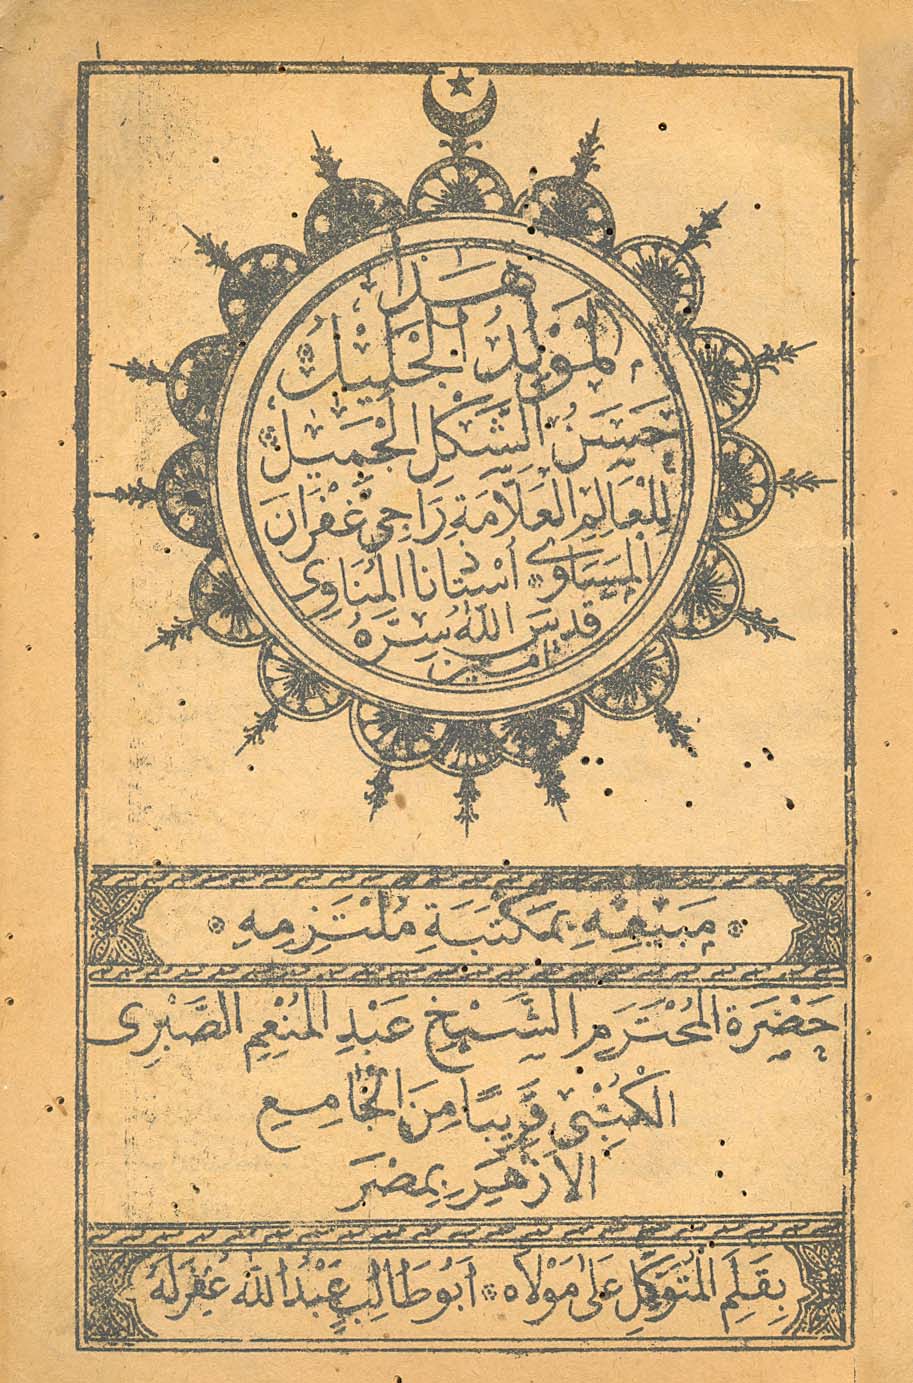 هَذَا
المَوْلِدُ الجَلِيْلُ
حَسَنُ الشَّكْلِ الجَمِيْلِ
لِلْعَالِمِ العَلَّامَةِ رَاجِي غُفْرَانَ
المَسَاوِي * اُسْتَانَا المُنَاوِى
قَدَّسَ اللّٰهُ سِرَّهُ
اٰمِيْن
* مَبِيْعُهُ بِمَكْتَبَةِ مُلْتَزِمِهِ *
حَضْرَةِ المُحْتَرَمِ الشَّيْخِ عَبْدِ المُنْعِمِ الصَّبْرِى
الكُتُبْىِ قَرِيبًا مِنَ الجَامِعِ
الاَزْهَرِ بِمِصْرَ
بِقَلَمِ المُتَوَكِّلِ عَلَى مَوْلَاه * اَبُو طَالِبْ عَبْدُ اللّٰه غُفِرَلَهُ